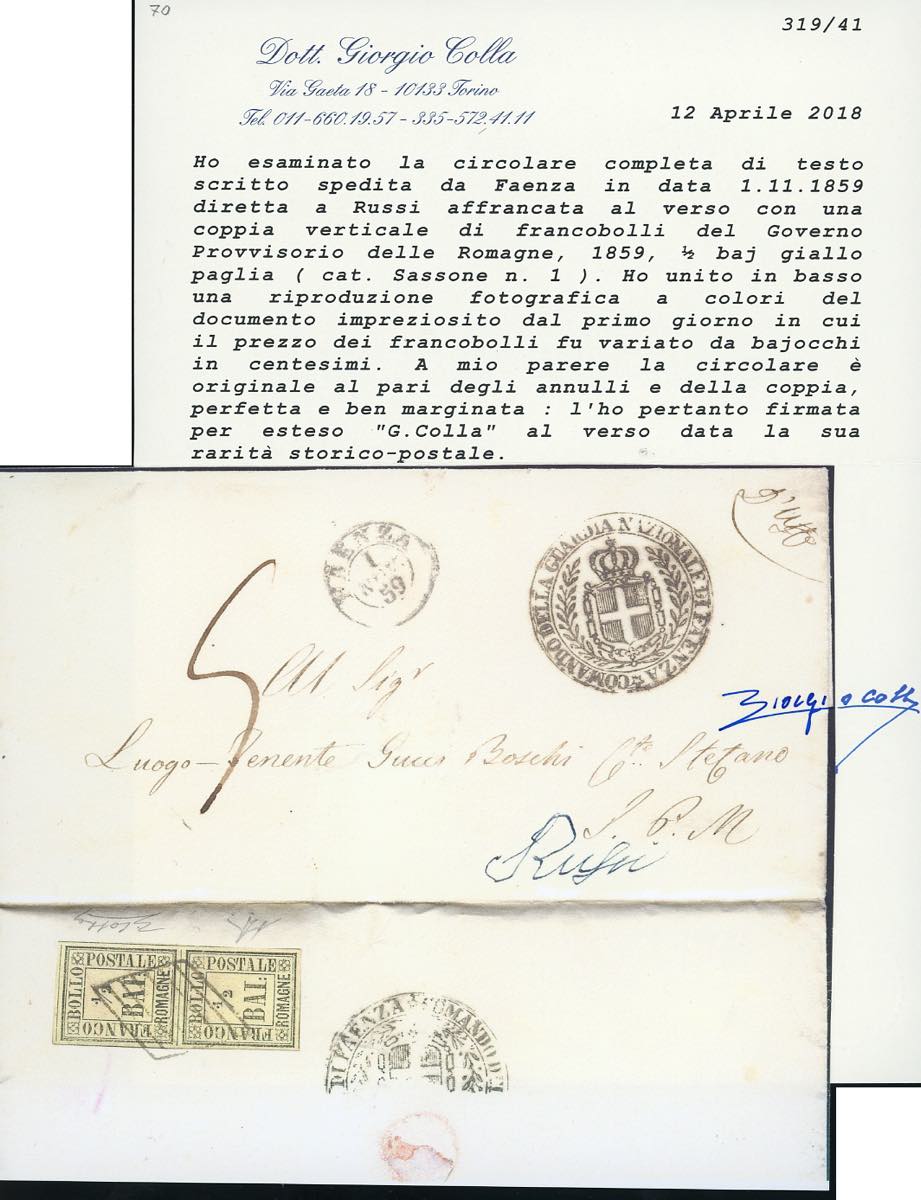 70
319/41
Dott. Giorgio Colla
Via Gaeta 18 - 10133 Torino
Tel. 011-660.19.57 - 335-572.41.11
12 Aprile 2018
Ho esaminato la circolare completa di testo
scritto spedita da Faenza in data 1.11.1859
diretta a Russi affrancata al verso con una
coppia verticale di francobolli del Governo
Provvisorio delle Romagne, 1859, ½ baj giallo
paglia ( cat. Sassone n. 1 ). Ho unito in basso
una riproduzione fotografica a colori del
documento impreziosito dal primo giorno in cui
il prezzo dei francobolli fu variato da bajocchi
in centesimi. A mio parere la circolare è
originale al pari degli annulli e della coppia,
perfetta e ben marginata : l'ho pertanto firmata
per esteso "G.Colla" al verso data la sua
rarità storico-postale.
FAENZA
1
59
COMANDO DELLA GUARDIA NAZIONALE DI FAENZA
5
All Sigr
Giorgio Colla
Luogo-Tenente Gucci Boschi Cte. Stefano
S. P. M
Russi
FRANCO BOLLO POSTALE ROMAGNE
1/2
BAI:
FRANCO BOLLO POSTALE ROMAGNE
1/2
BAI:
DI FAENZA COMANDO DEL